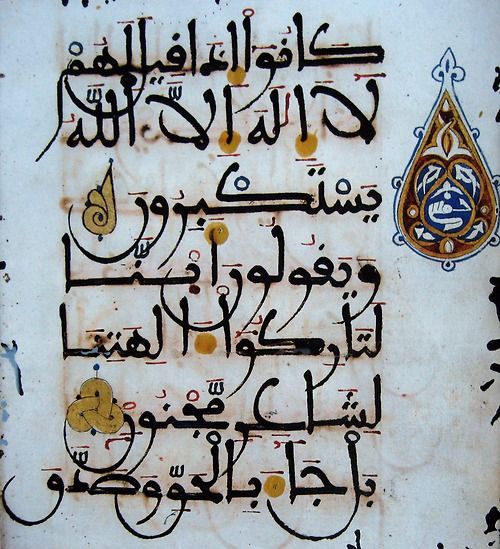 كَانُوٓاْ إِذَا قِيلَ لَهُمْ
لَآ إِلَٰهَ إِلَّا ٱللَّهُ
يَسْتَكْبِرُونَ
وَيَقُولُونَ أَئِنَّا
لَتَارِكُوٓاْ ءَالِهَتِنَا
لِشَاعِرٍ مَّجْنُونٍ
بَلْ جَآءَ بِٱلْحَقِّ وَصَدَّقَ